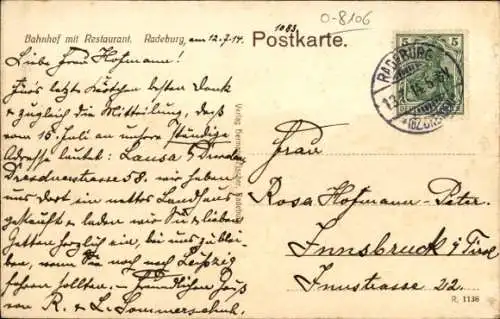 Bahnhof mit Restaurant. Radeburg, am 12.7.14.
1083
0-8106
Postkarte.
5 5
RADEBURG
Liebe Frau Hofmann!
Fürs letzte Kärtchen besten Dank
& zugleich die Mitteilung, daß
vom 15. Juli an unsere ständige
Adresse lautet: Lausa b/Dresden,
Dresdnerstrasse 58. wir haben
uns dort ein nettes Landhaus
gekauft & laden wir Sie & lieben
Gatten herzlich ein, bei uns zu blei-
ben, wenn Sie noch nach Leipzig
fahren sollten. Freundlichen Gruß
von R. & L. Sommerschuh.
Frau
Rosa Hofmann-Peter.
Innsbruck i/Tirol
Innstrasse 22.
R. 1136